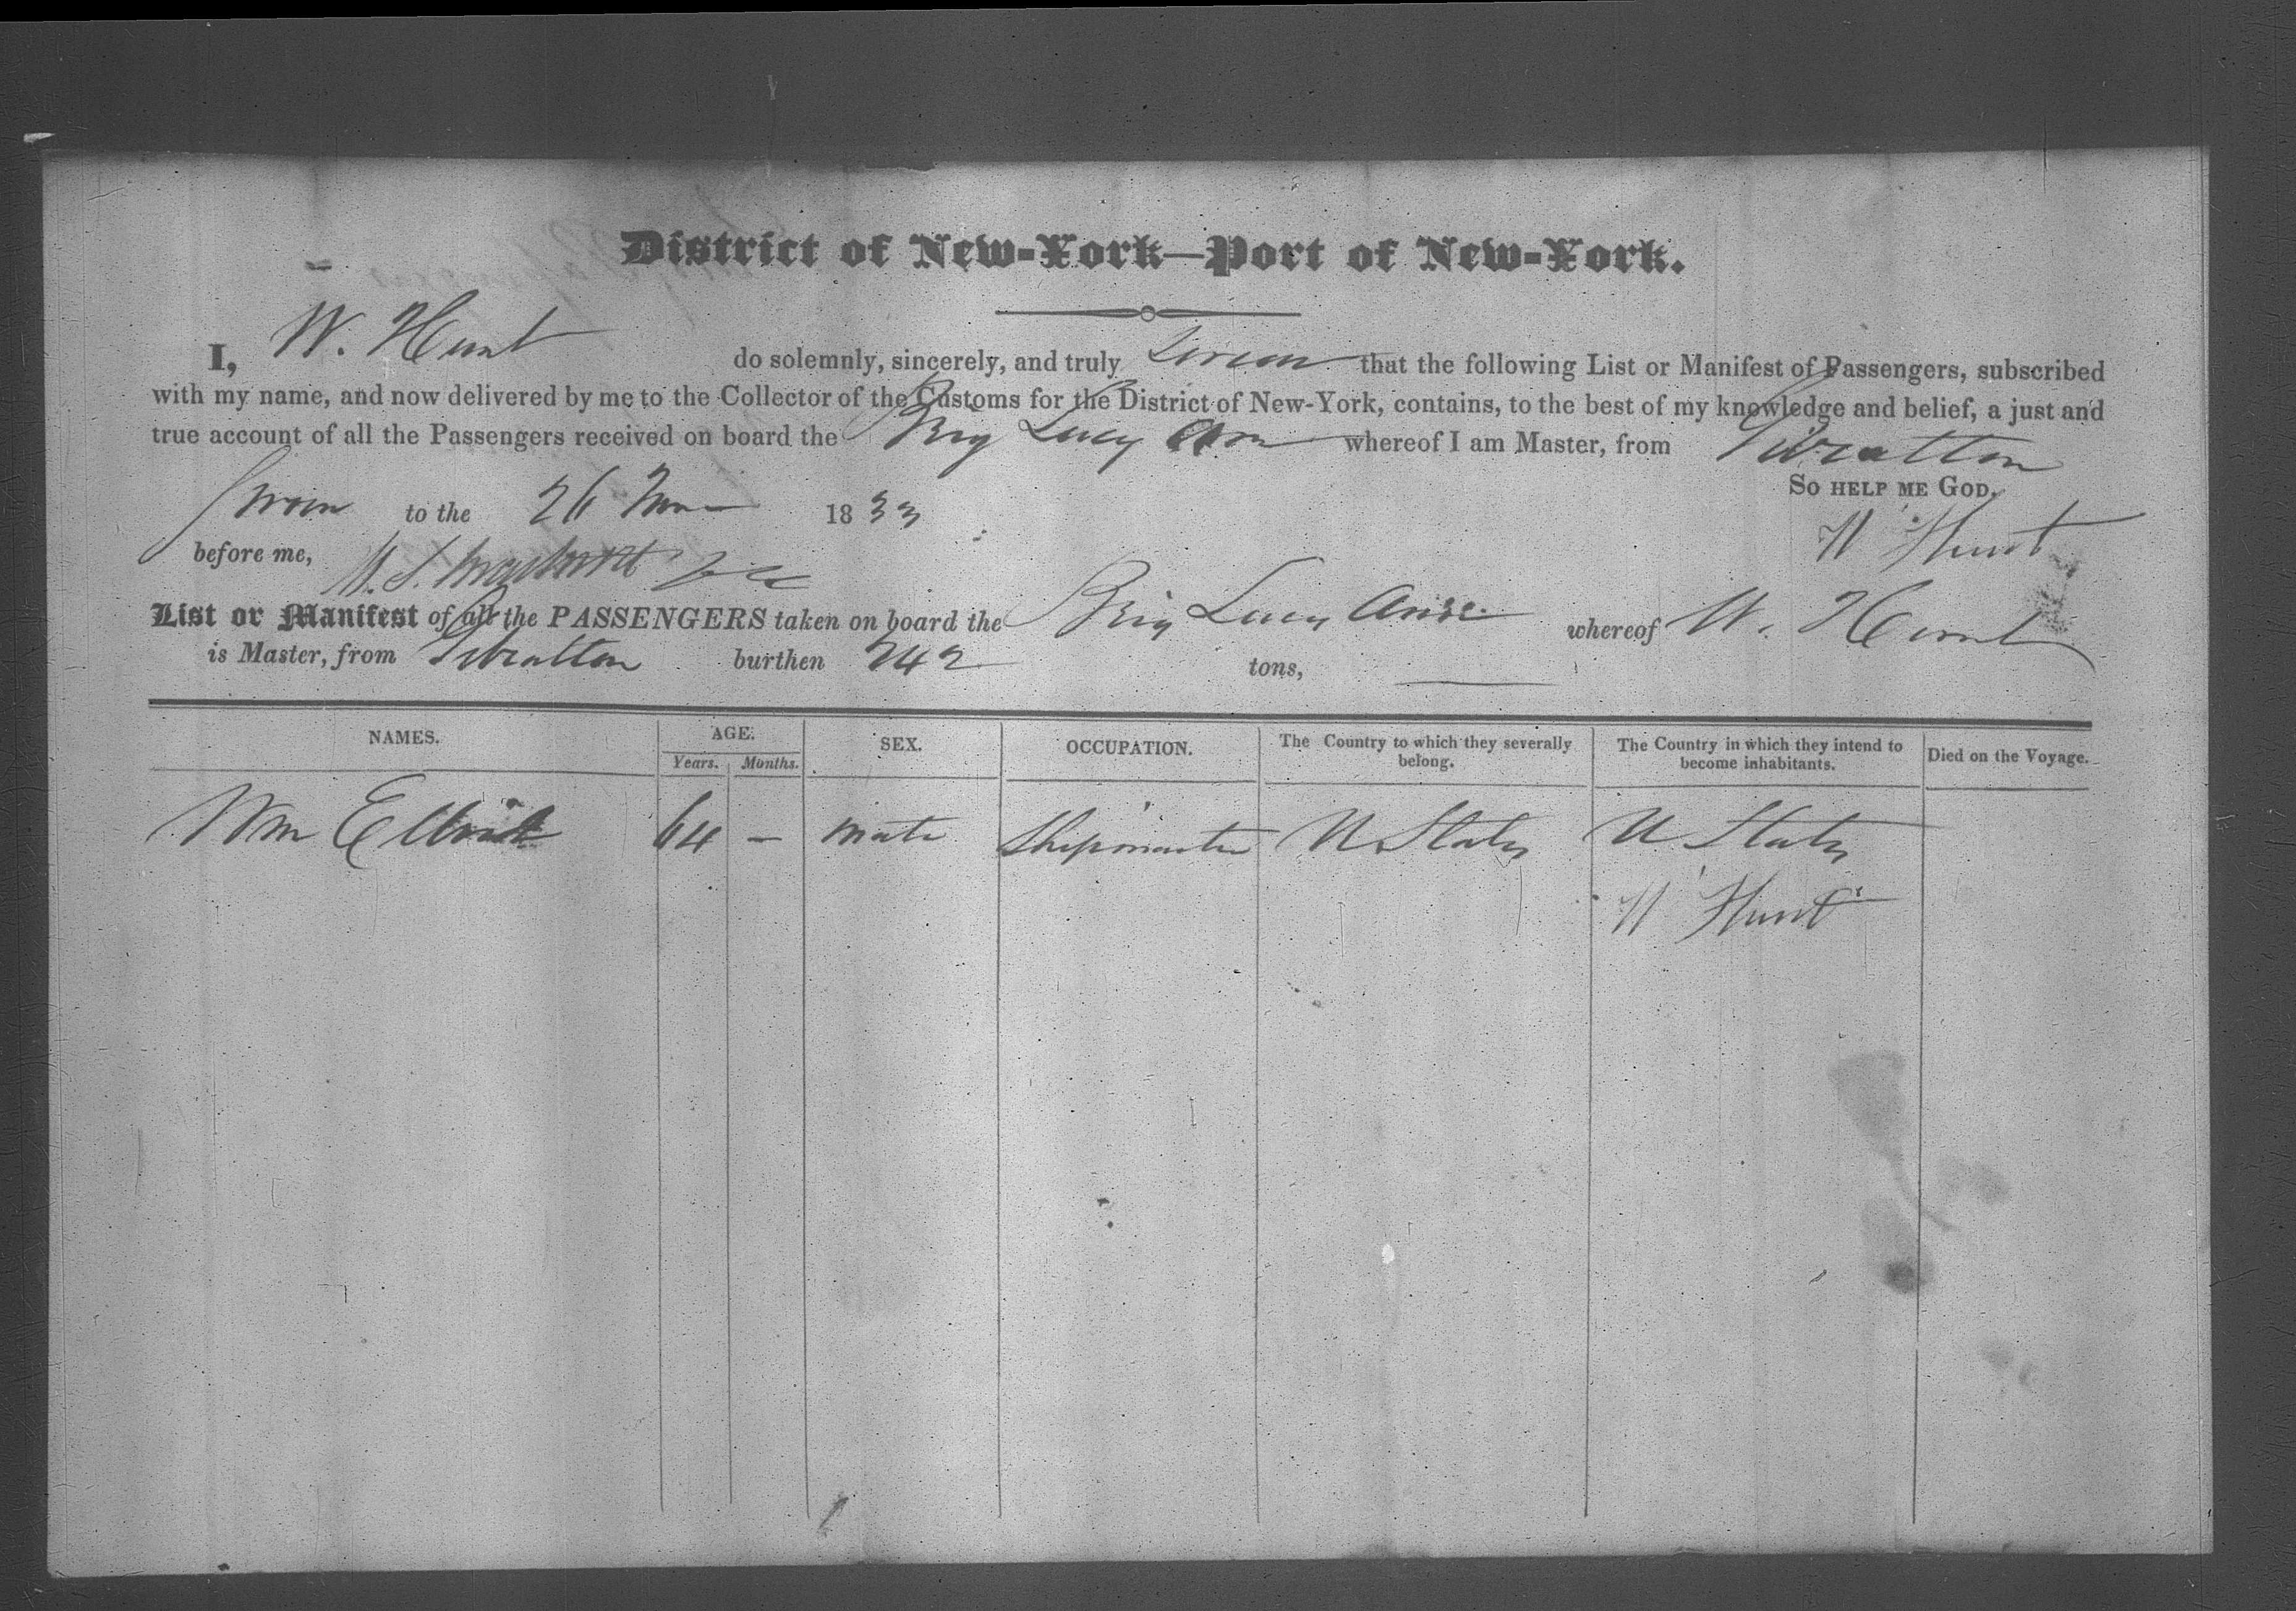 District of New-York—Port of New-York.
I, W. Hunt do solemnly, sincerely, and truly swear that the following List or Manifest of Passengers, subscribed
with my name, and now delivered by me to the Collector of the Customs for the District of New-York, contains, to the best of my knowledge and belief, a just and
true account of all the Passengers received on board the Brig Lucy Ann whereof I am Master, from
So help me God.
Sworn to the 26 1833
W Hunt
before me,
List or Manifest of all the PASSENGERS taken on board the Brig Lucy Ann whereof W. Hunt
is Master, from burthen 242 tons,
NAMES. AGE. SEX. OCCUPATION. The Country to which they severally belong. The Country in which they intend to become inhabitants. Died on the Voyage.
Years. Months.
Wm 64 — male Shipmaster U States U States
W Hunt